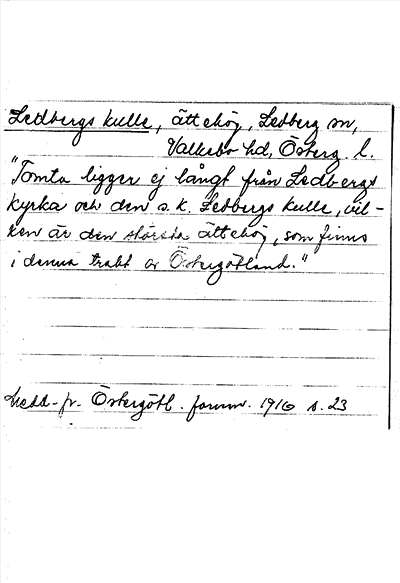 Ledbergs kulle, ättehög, Ledberg sn,
Valkebo hd, Österg. l.
"Tomta ligger ej långt från Ledbergs
kyrka och den s.k. Ledbergs kulle, vil-
ken är den största ättehög, som finns
i denna trakt av Östergötland."
Medd. fr. Östergötl. fornm. 1916 s. 23